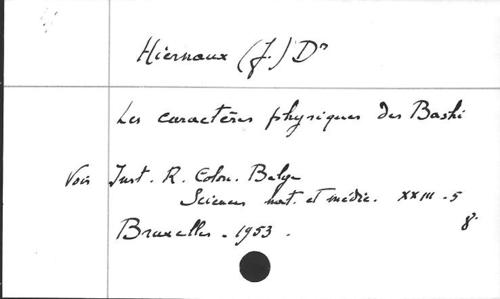 Hiernaux (J.) Dr
Les caractères physiques des Bashi
Voir Inst. R. Colon. Belge
Sciences nat. et médic. XXIII - 5
8°
Bruxelles - 1953.